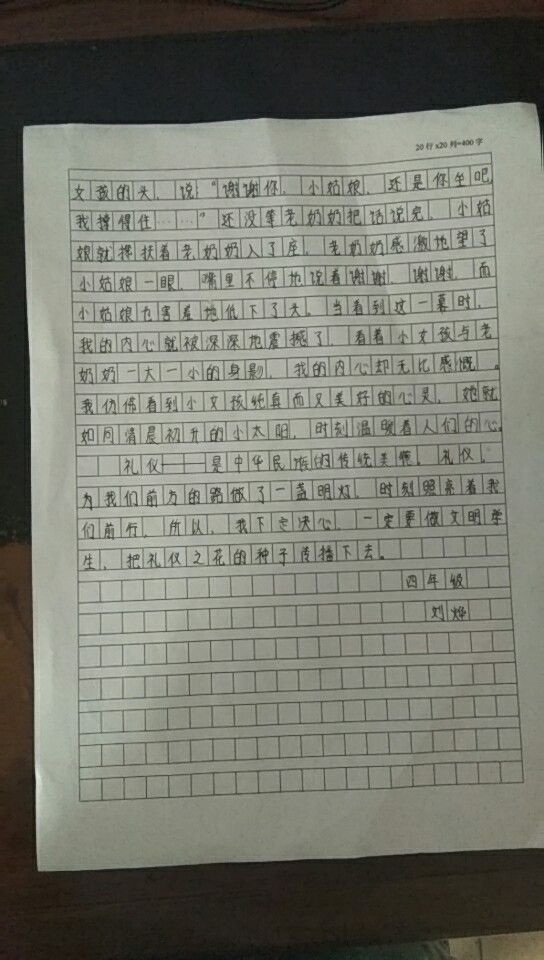 20行x20列=400字
女孩的头，说："谢谢你，小姑娘，还是你坐吧，
我撑得住……"还没等老奶奶把话说完，小姑
娘就搀扶着老奶奶入了座，老奶奶感激地望了
小姑娘一眼，嘴里不停地说着谢谢，谢谢，而
小姑娘也害羞地低下了头。当看到这一幕时，
我的内心就被深深地震撼了，看着小女孩与老
奶奶一大一小的身影，我的内心却无比感慨。
我仿佛看到小女孩纯真而又美好的心灵，她就
如同清晨初升的小太阳，时刻温暖着人们的心。
礼仪——是中华民族的传统美德。礼仪，
为我们前方的路做了一盏明灯，时刻照亮着我
们前行，所以，我下定决心，一定要做文明学
生，把礼仪之花的种子传播下去。
四年级
刘